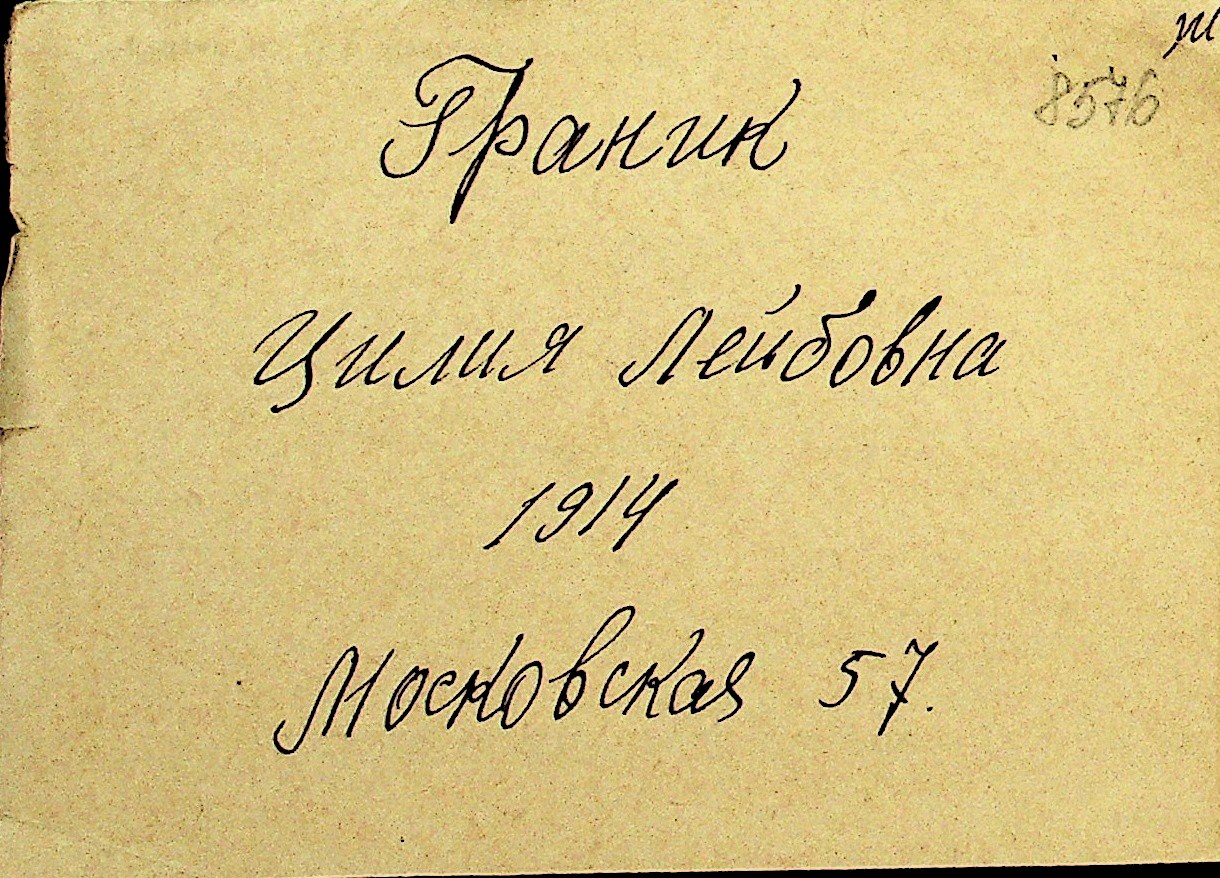 8576
Граник
Цилия Лейбовна
1914
Московская 57.